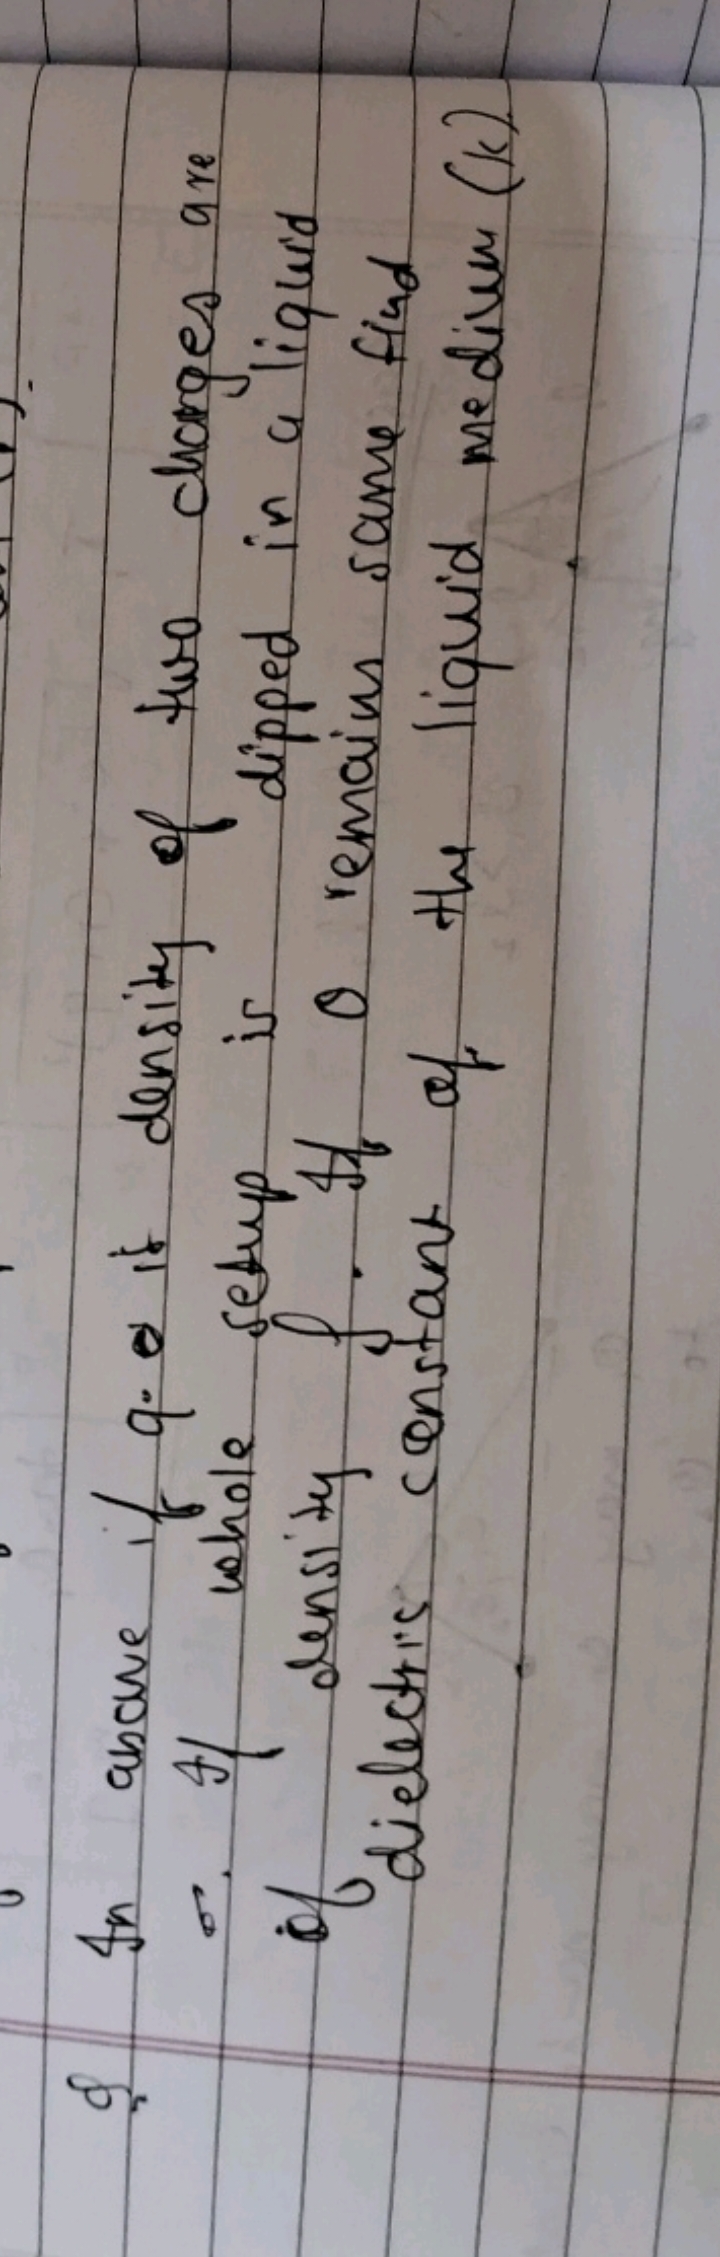 Q. In above if q. θ if density of two charges are
σ. If whole setup is dipped in a liquid
of density ρ. If θ remains same find
dielectric constant of the liquid medium (k).